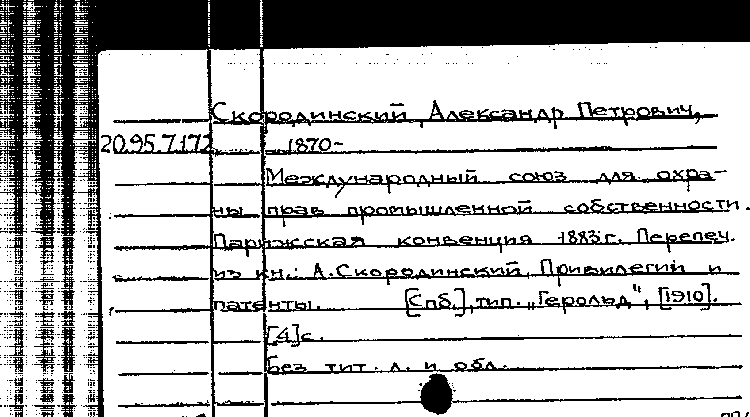 Скородинский, Александр Петрович,
20.95.7.172 1870-
Международный союз для охра-
ны прав промышленной собственности.
Парижская конвенция 1883 г. Перепеч.
из кн.: А. Скородинский. Привилегии и
патенты. [Спб.], тип. „Герольд", [1910].
[4] с.
Без тит. л. и обл.